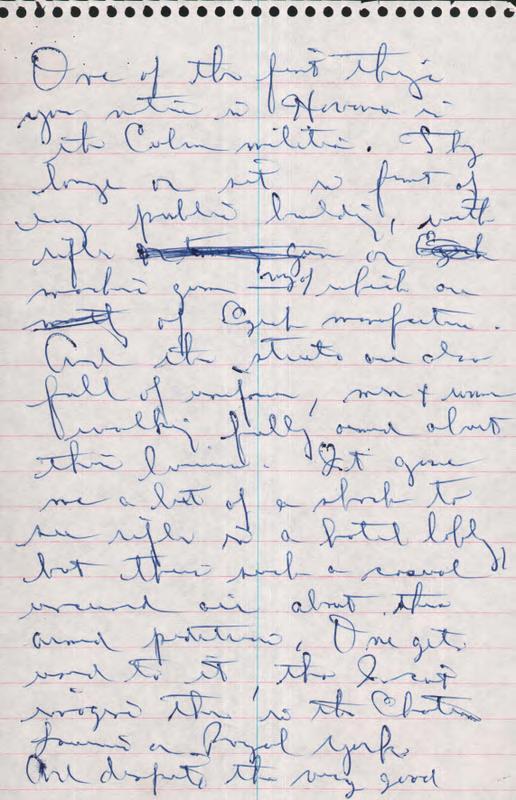 One of the first things
you notice in Havana is
the Cuban militia. They
lounge or sit in front of
every public building, with
rifles or
machine guns many of which are
of Czech manufacture.
And the streets are also
full of uniforms, men & women
walking fully armed about
their business. It gave
me a bit of a shock to
see rifles in a hotel lobby,
but there's such a casual
unwarned air about these
armed pedestrians, One gets
used to it, tho I can't
imagine them in the Chateau
Laurier or Royal York.
And despite the very good